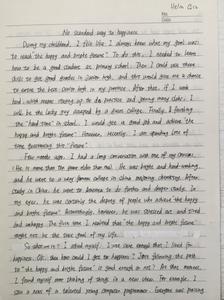 Helen Qiu
No.
Date
No standard way to happiness
During my childhood, I felt like I always knew what my goal was:
to reach "the happy and bright future". To do this, I needed to learn
how to be a good student in primary school. Then I could use these
skills to get good grades in Junior high, and this would give me a chance
to enter the best Senior high in my province. After that, if I work
hard, which means staying up to do practice and joining many clubs, I
will be the lucky dog accepted by a dream college. Finally, I finishing
the "hard time" in life, I would get a good job and achieve "the
happy and bright future". However, recently, I am spending lots of
time questioning this "future".
Few months ago, I had a long conversation with one of my cousins.
He is more than ten years older than me. He was bright and hard-working,
and he went to a very famous college in China studying chemistry. After
study in China, he went to America to do further and deeper study. In
my eyes, he was certainly the deputy of people who achieve "the happy
and bright future". Astonishingly, however, he was stressed out and tired
and unhappy. The first time I realized that "the happy and bright future"
might not be the true goal of my life.
So what is it? I asked myself. I was sure enough that I lived for
happiness. OK, then how could I get to happiness? Does following the path
to "the happy and bright future" is good enough or not? At that moment,
I found myself now thinking of things in a new way. For example, I
saw a news of a talented young computer programmer. Everyone was praising